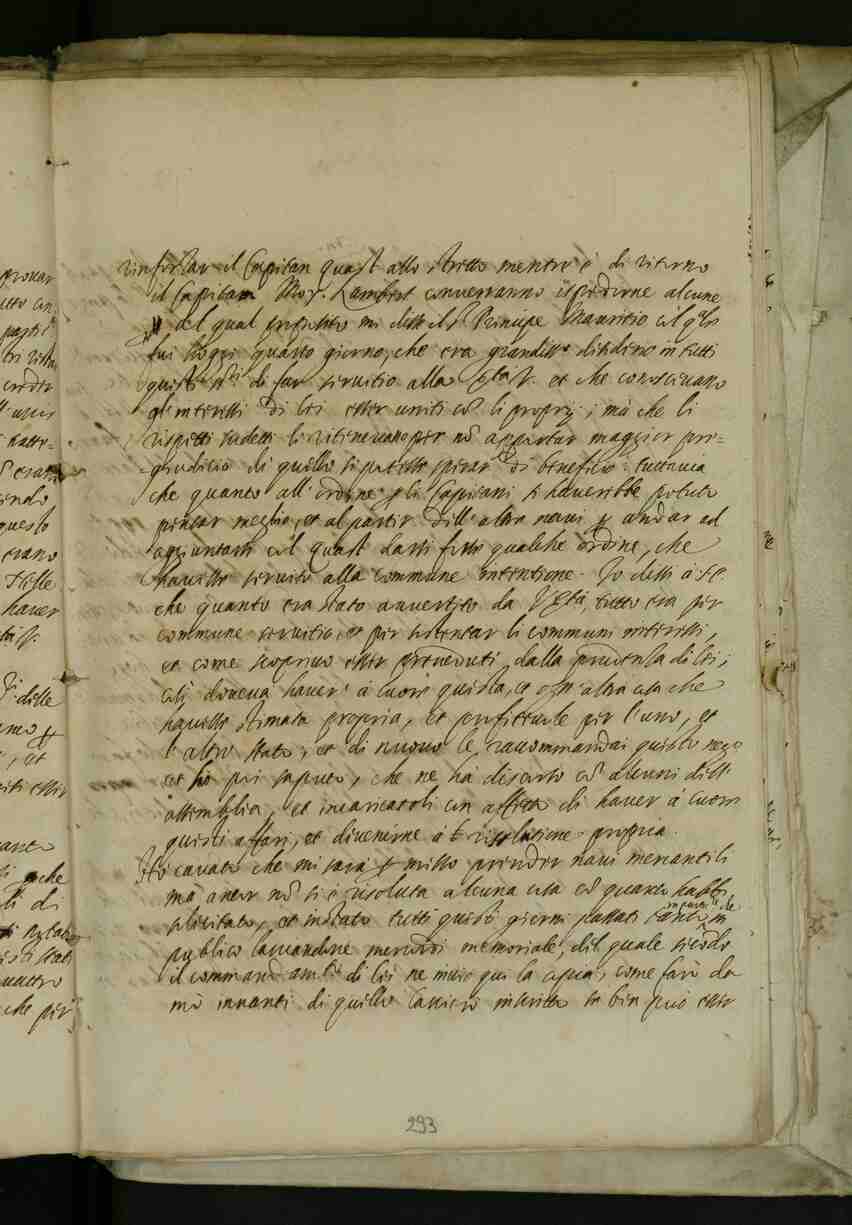 rinforzar il Capitan Quast allo stretto mentre è di ritorno
il Capitan Moy. Lambert conveniranno ispedirne alcune
del qual proposito mi disse il Principe Mauritio col qle
fui hoggi quarto giorno, che era grandissº desiderio in tutti
questi Sri di far servitio alla Sertà V. et che conoscevano
gl'interessi di lei esser uniti cō li proprij; mà che li
rispetti sudetti li ritenevano per nō apportar maggior pre-
giudicio di quello si potesse sperar di beneficio: tuttavia
che quanto all'ordine gli Capitani si haverebbe potuto
pensar meglio, et al partir dell'altre navi ꝑ andar ad
aggiuntarsi col Quast darsi forse qualche ordine, che
havesse servito alla commune intentione. Io dissi à S.E.
che quanto era stato avvertito da V Sertà, tutto era per
commune servitio, et per sostentar li communi interessi,
et come scoprivo esser preveduti dalla prudenza di lei;
così doveva haver à cuore questa, et ogn'altra cosa che
havesse stimata propria, et profittevole per l'uno, et
l'altro stato; et di nuovo le raccommandai questo nego
et hò poi saputo, che ne hà discorso cō alcuni dell'
assemblea, et incaricatoli con affetto di haver à cuore
questi affari, et divenirne à resolutione propria.
Hò cavato che mi sarà ꝑmesso prender navi mercantili
mà ancor nō si è risoluta alcuna cosa cō quanto habbi
sollicitato, et instato tutti questi giorni passati tanto in
publico lasciandone mercordì memoriale, del quale secōdo
il commandamto di lei ne invio qui la copia, come farò da
mò innanti di quello lascierò in scritto se ben può esser
293